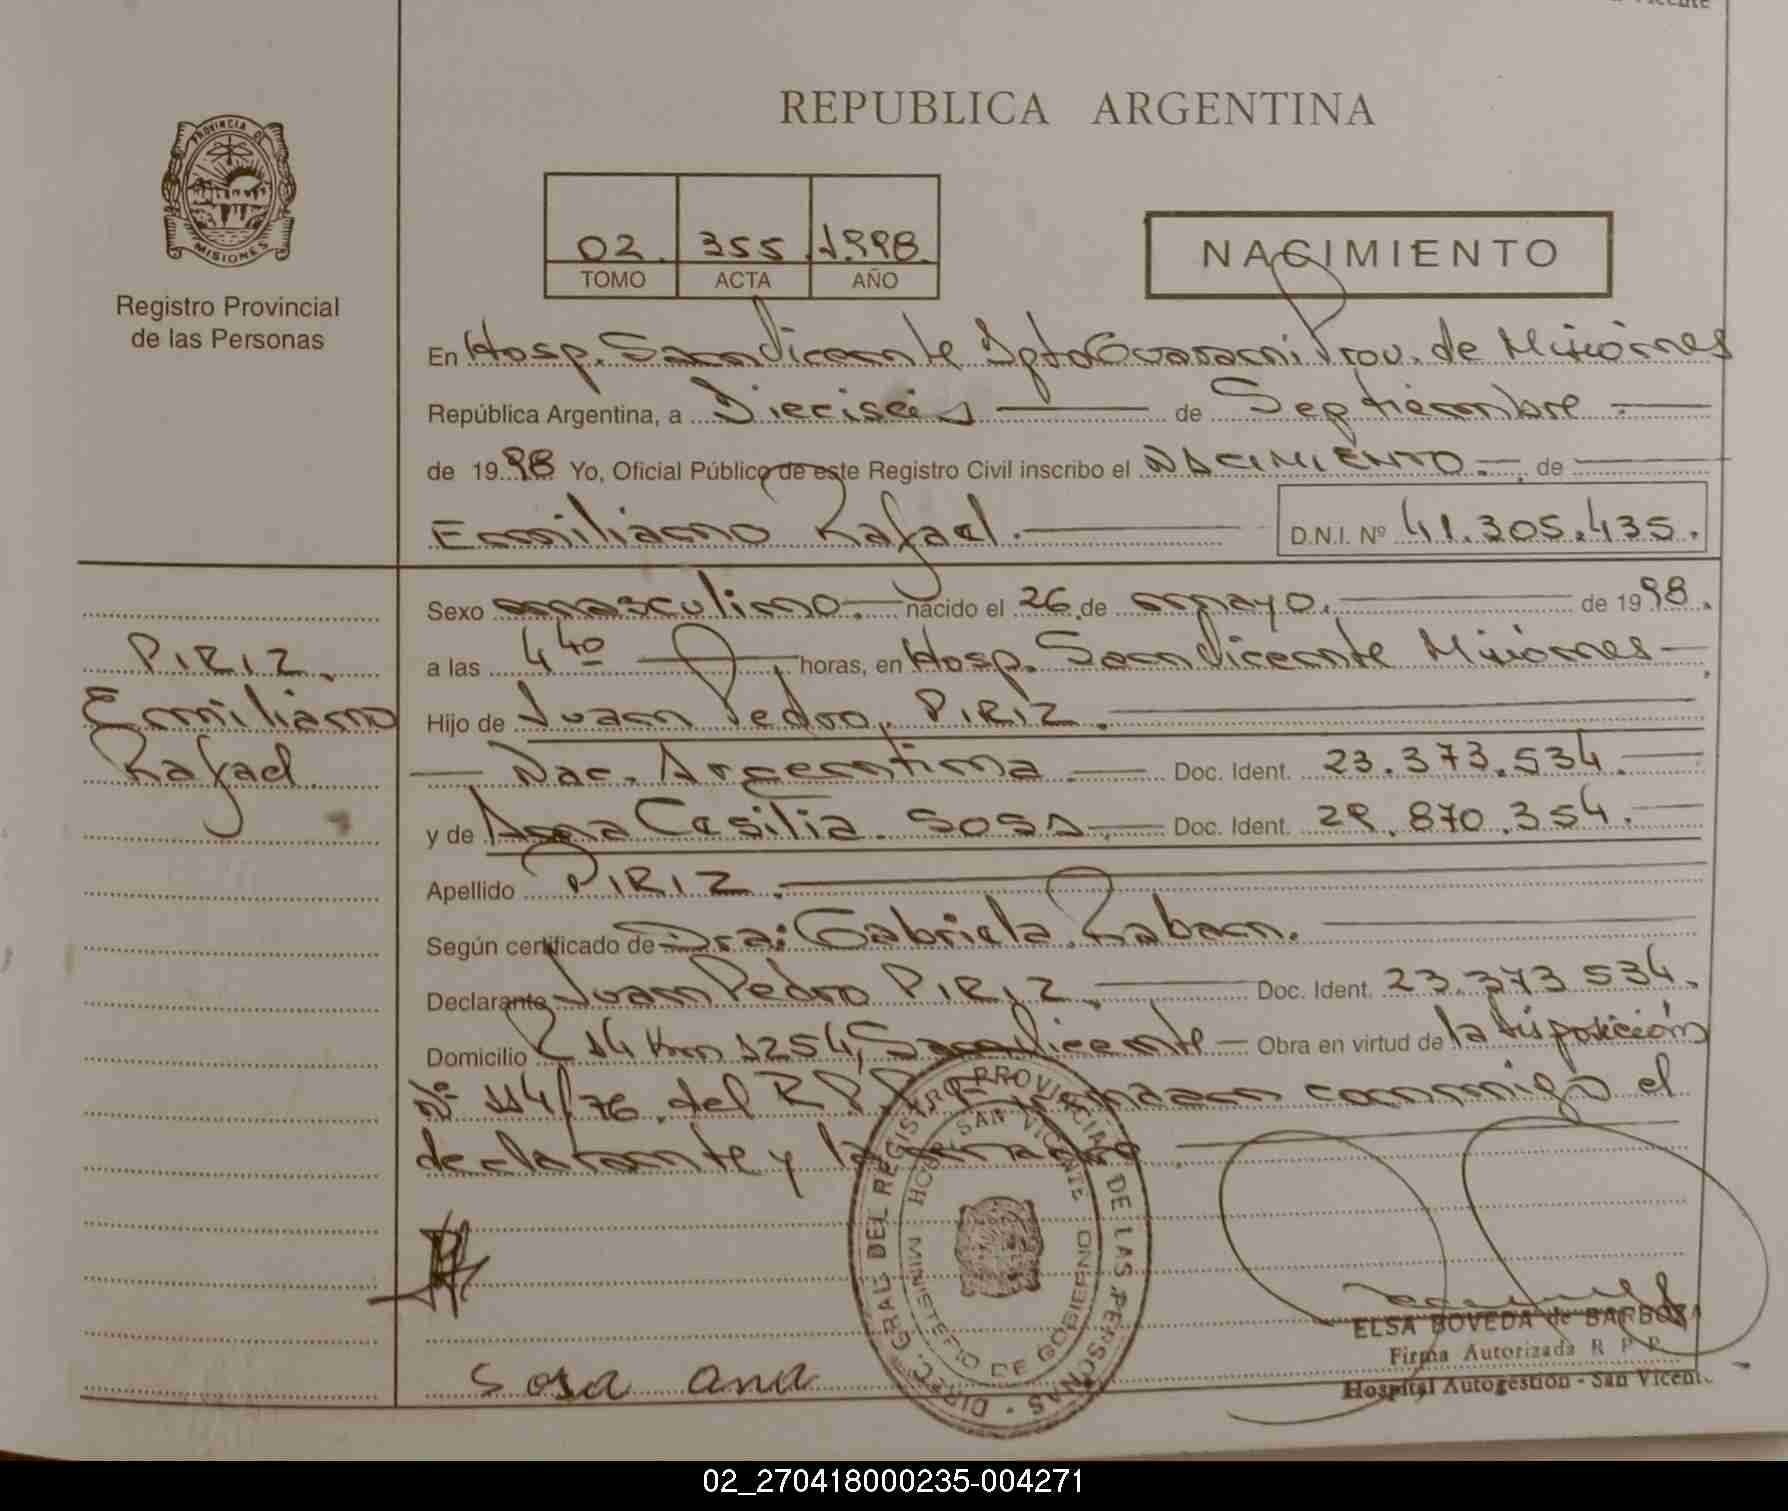 REPUBLICA ARGENTINA
PROVINCIA DE
MISIONES
Registro Provincial
de las Personas
02. 355 1.998.
TOMO ACTA AÑO
NACIMIENTO
En Hosp. San Vicente Dpto Guarani Prov. de Misiones
República Argentina, a Dieciseis de Septiembre
de 1998 Yo, Oficial Público de este Registro Civil inscribo el NACIMIENTO.- de
Emiliano Rafael. D.N.I. Nº 41.305.435.
Sexo masculino. nacido el 26 de mayo. de 1998.
a las 4 40 horas, en Hosp. San Vicente Misiones
Hijo de Juan Pedro, PIRIZ.
Nac. Argentina Doc. Ident. 23.373.534.
y de Ana Cesilia SOSA Doc. Ident. 29.870.354.
Apellido PIRIZ.
Según certificado de Dra: Gabriela Raban.
Declarante Juan Pedro PIRIZ. Doc. Ident. 23.373 534.
Domicilio R 14 Km 1254, San Vicente Obra en virtud de la disposición
Nº 114/76. del R P P conmigo el
declarante y la
PIRIZ.
Emiliano
Rafael
DIREC. GRAL DEL REGISTRO PROVINCIAL DE LAS PERSONAS
HOSP. SAN VICENTE
MINISTERIO DE GOBIERNO
Sosa ana
ELSA BOVEDA de BARBOZA
Firma Autorizada R P P
Hospital Autogestión - San Vicent.
02_270418000235-004271